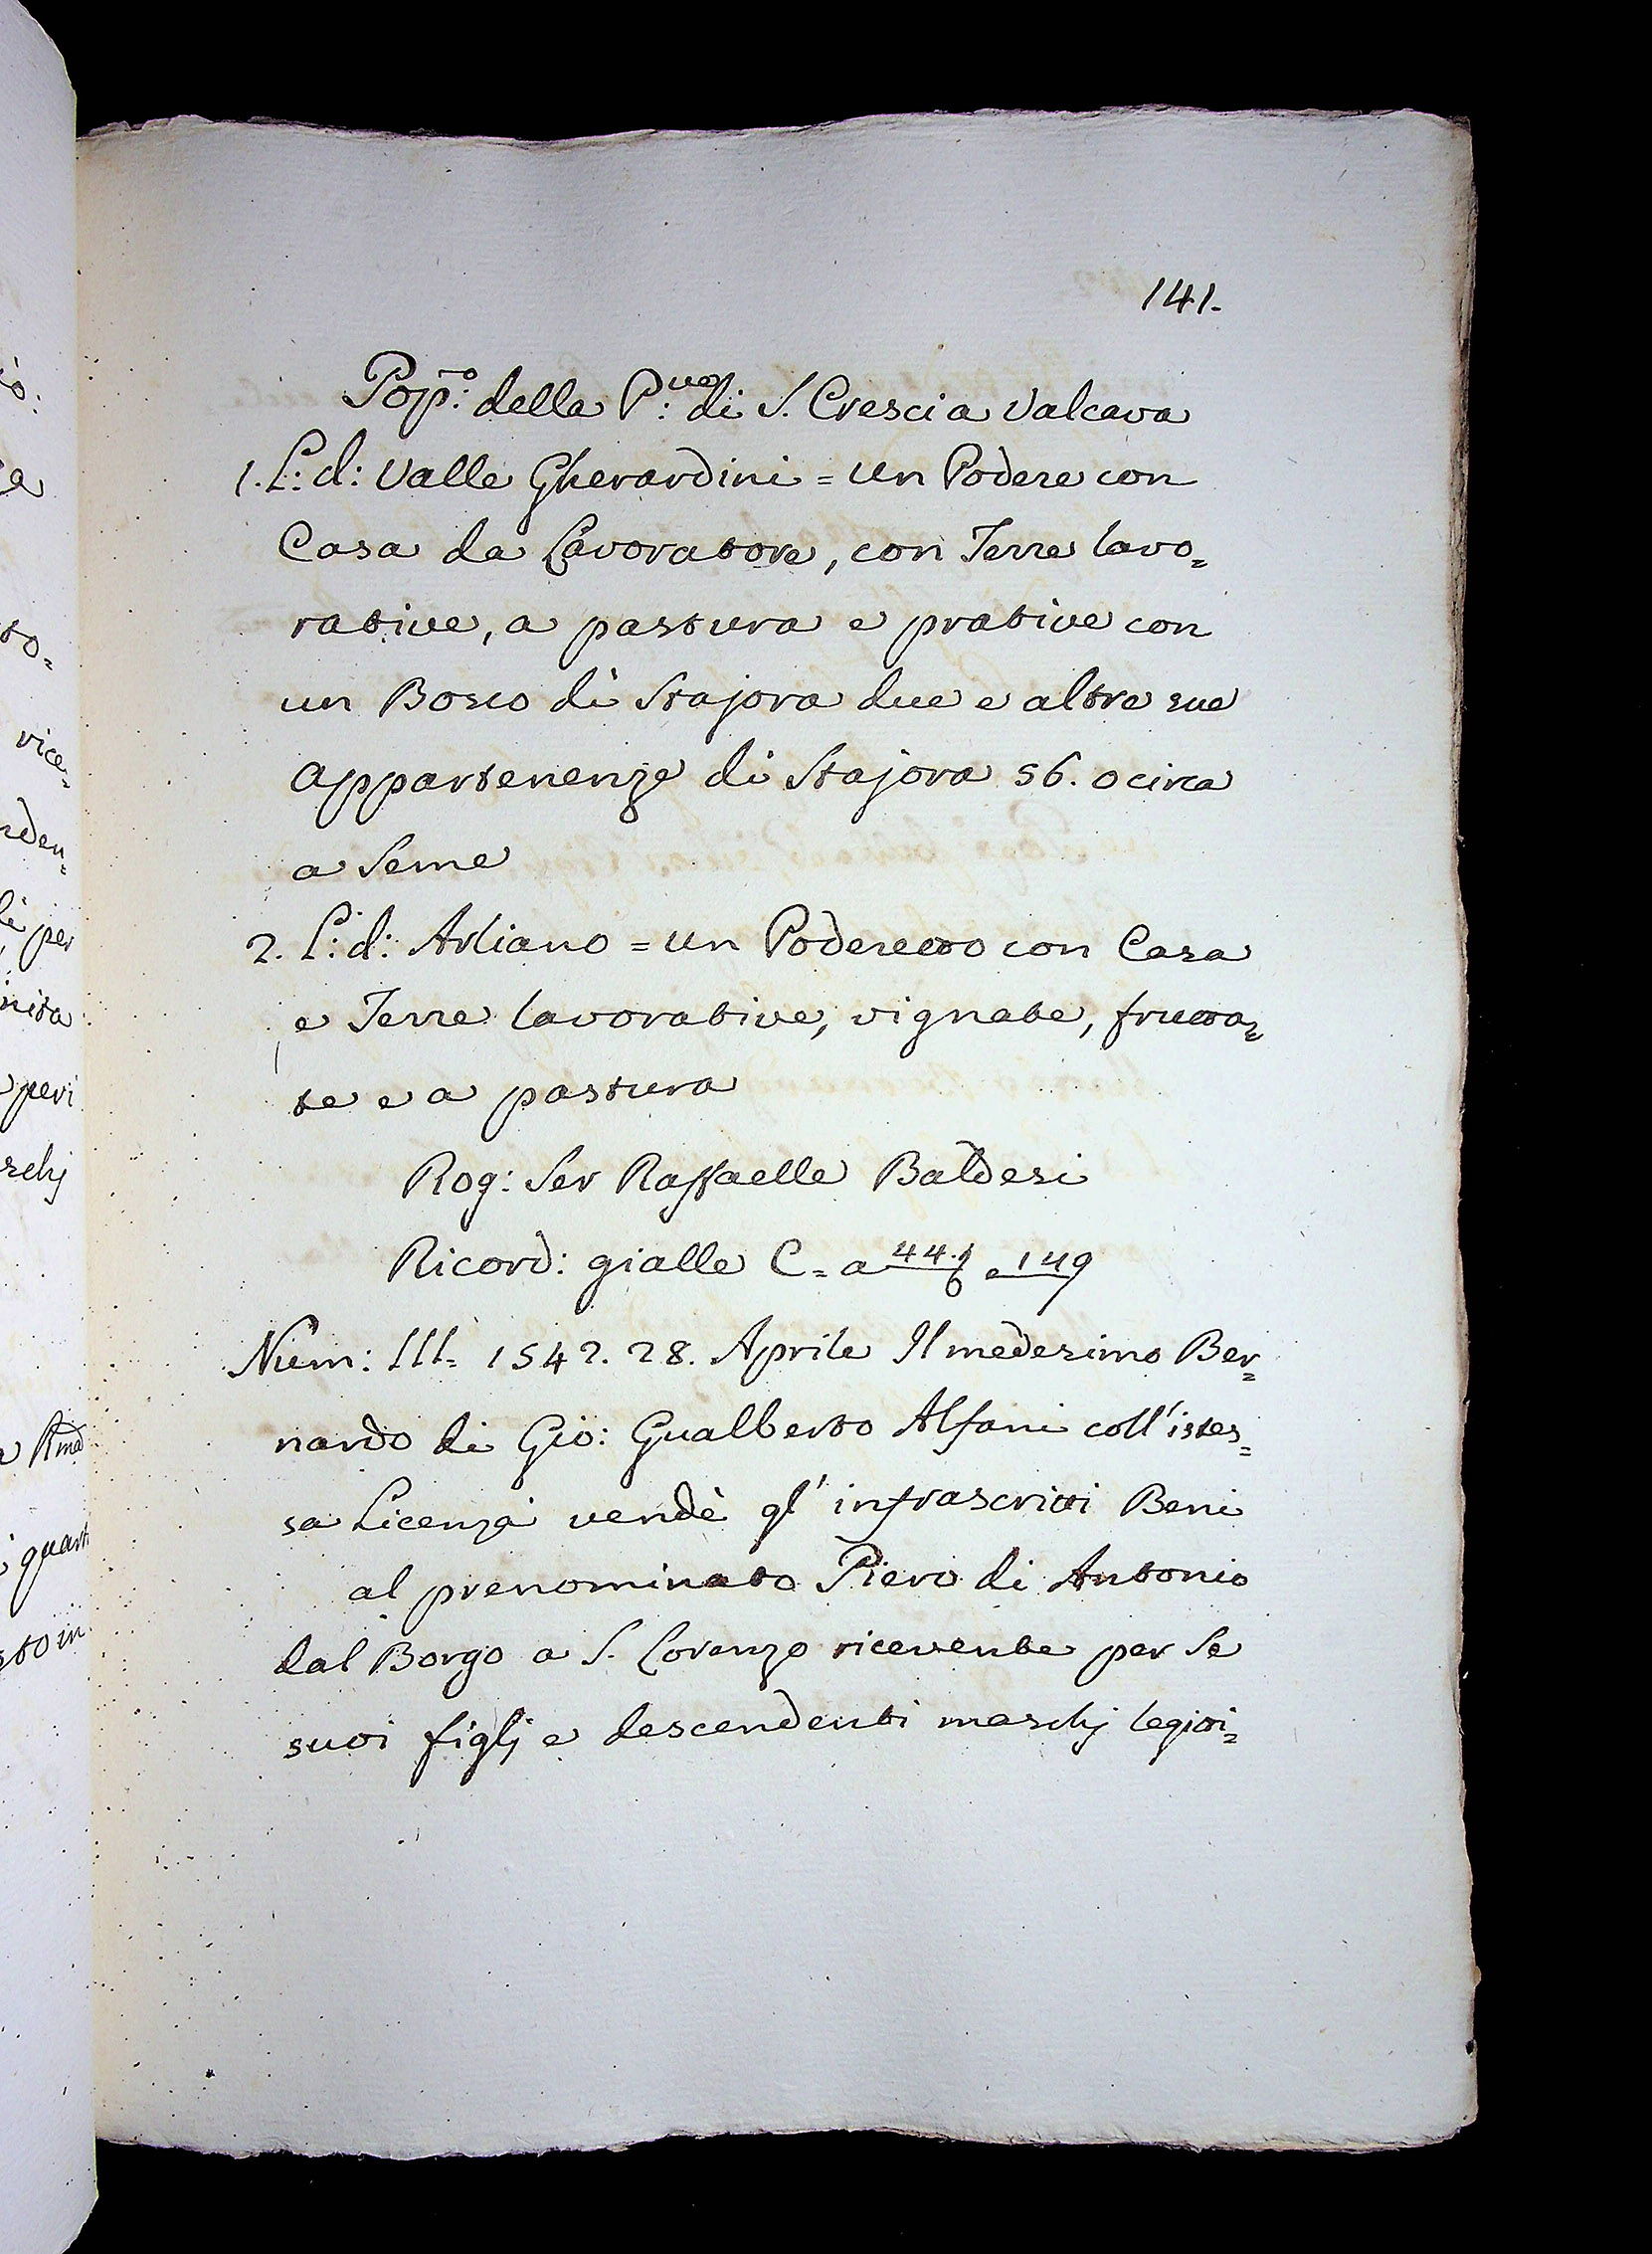 141.
Pop.º: della P.ve: di S. Cresci a Valcava
1. L: d: Valle Gherardini = un Podere con
Casa da Lavoratore, con Terre lavo=
rative, a pastura e prative con
un Bosco di Stajora due e altre sue
appartenenze di Stajora 56. o circa
a Seme
2. L: d: Arliano = un Poderetto con Casa
e Terre lavorative, vignate, frutta=
te e a pastura
Rog: Ser Raffaelle Baldesi
Ricord: gialle C= a 44. e 149
Num: III= 1542. 28. Aprile Il medesimo Ber=
nardo di Gio: Gualberto Alfani coll'istes=
sa Licenza vendè gl'infrascritti Beni
al prenominato Piero di Antonio
dal Borgo a S. Lorenzo ricevente per Se
suoi figlj e descendenti maschj legitti=
per
quart